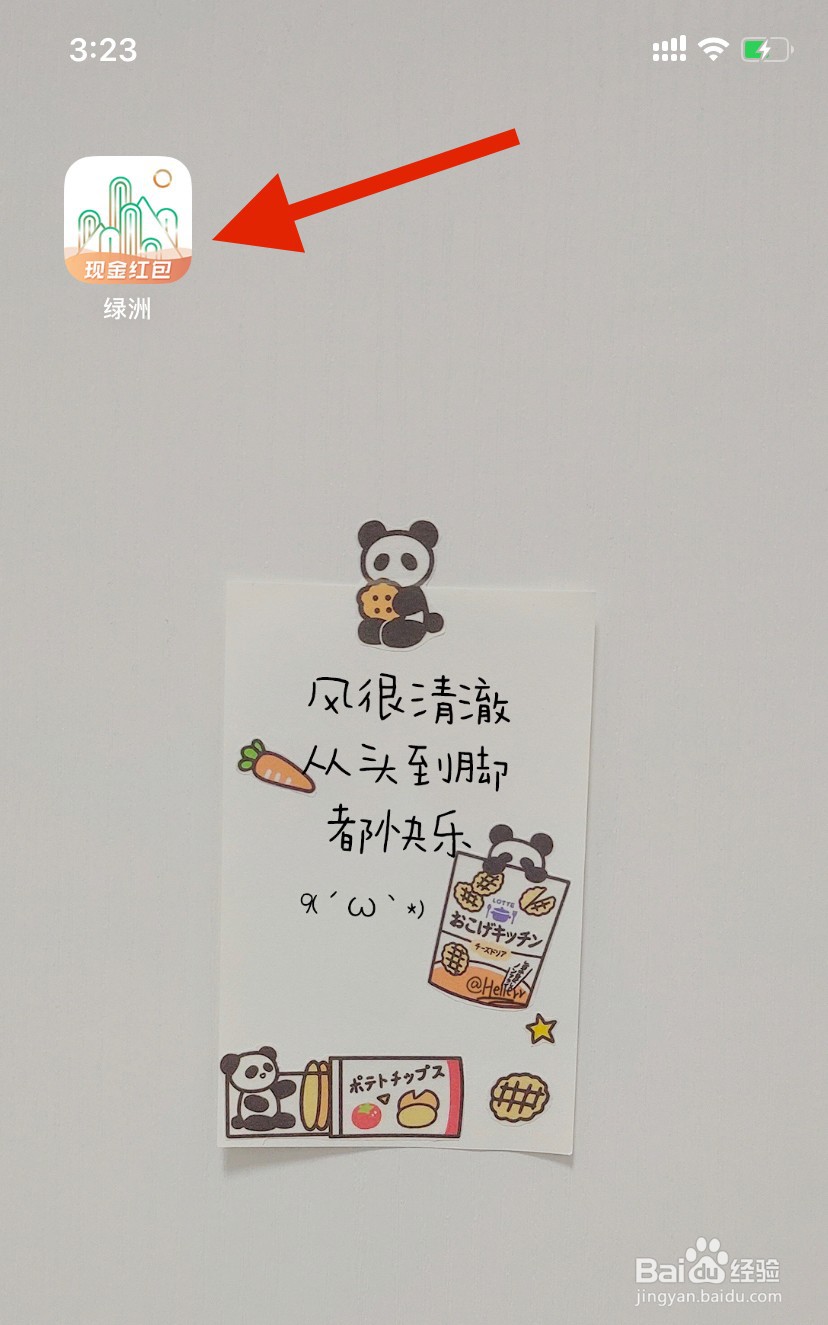 3:23
现金红包
绿洲
风很清澈
从头到脚
都快乐
٩(´ω`*)
LOTTE
おこげキッチン
チーズドリア
@Hellevv
ポテトチップス
Bai du 经验
jingyan.baidu.com